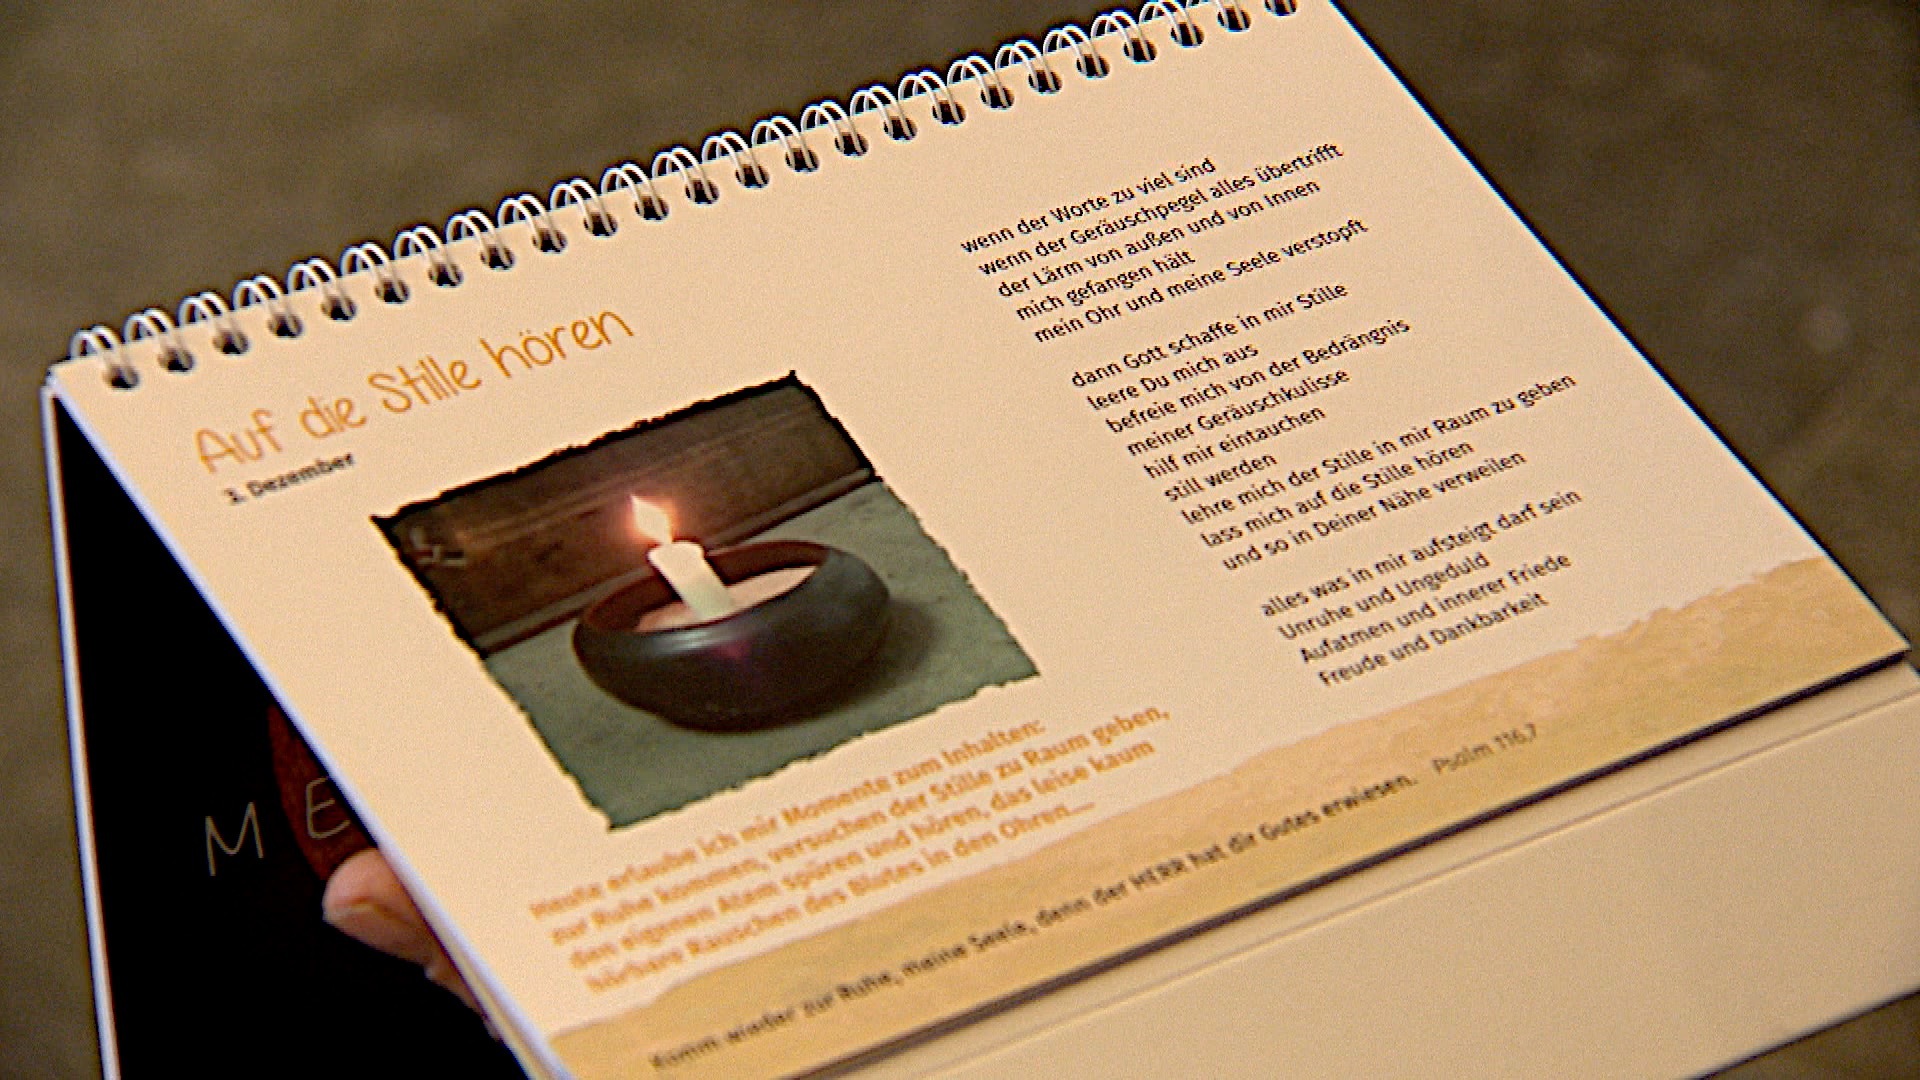 Auf die Stille hören
3. Dezember
Heute erlaube ich mir Momente zum Inhalten:
zur Ruhe kommen, versuchen der Stille zu Raum geben,
den eigenen Atam spüren und hören, das leise kaum
hörbare Rauschen des Blutes in den Ohren....
wenn der Worte zu viel sind
wenn der Geräuschpegel alles übertrifft
der Lärm von außen und von Innen
mich gefangen hält
mein Ohr und meine Seele verstopft
dann Gott schaffe in mir Stille
leere Du mich aus
befreie mich von der Bedrängnis
meiner Geräuschkulisse
hilf mir eintauchen
still werden
lehre mich der Stille in mir Raum zu geben
lass mich auf die Stille hören
und so in Deiner Nähe verweilen
alles was in mir aufsteigt darf sein
Unruhe und Ungeduld
Aufatmen und innerer Friede
Freude und Dankbarkeit
Komm wieder zur Ruhe, meine Seele, denn der HERR hat dir Gutes erwiesen. Psalm 116,7
M E